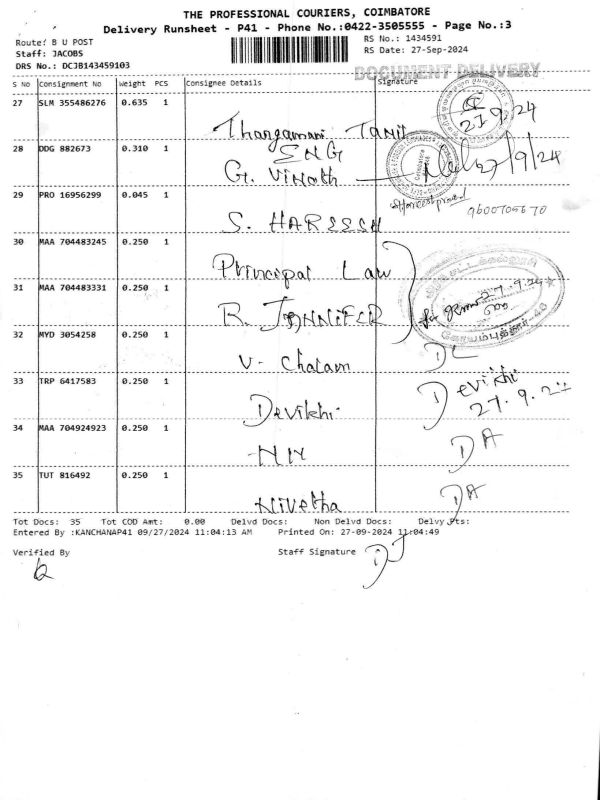 THE PROFESSIONAL COURIERS, COIMBATORE
Delivery Runsheet - P41 - Phone No.:0422-3505555 - Page No.:3
Route: B U POST
Staff: JACOBS
DRS No.: DCJB143459103
RS No.: 1434591
RS Date: 27-Sep-2024
DOCUMENT DELIVERY
S No Consignment No Weight PCS Consignee Details Signature
27 SLM 355486276 0.635 1 Thangamani Tamil 27.9.24
28 DDG 882673 0.310 1 ENG G. Vinoth 27/9/24
29 PRO 16956299 0.045 1 S. HAREESH
30 MAA 704483245 0.250 1 Principal Law 27.9.24
31 MAA 704483331 0.250 1 R. JENNIFER
32 MYD 3054258 0.250 1 V. Chalam DL
33 TRP 6417583 0.250 1 Devikhi Devikhi
27.9.24
34 MAA 704924923 0.250 1 HN DA
35 TUT 816492 0.250 1 Nivetha DA
Tot Docs: 35 Tot COD Amt: 0.00 Delvd Docs: Non Delvd Docs: Delvy Pts:
Entered By :KANCHANAP41 09/27/2024 11:04:13 AM Printed On: 27-09-2024 11:04:49
Verified By Staff Signature DJ